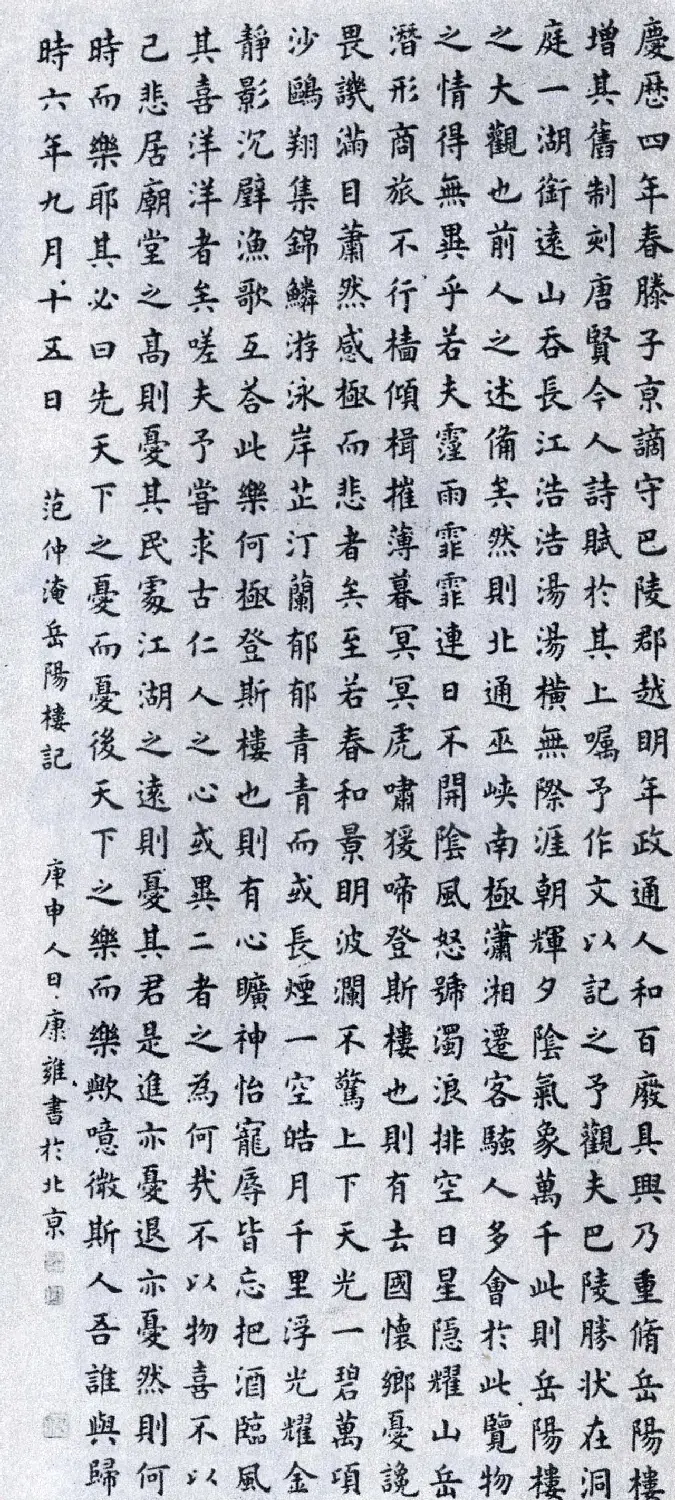 慶歷四年春滕子京謫守巴陵郡越明年政通人和百廢具興乃重脩岳陽樓
增其舊制刻唐賢今人詩賦於其上囑予作文以記之予觀夫巴陵勝狀在洞
庭一湖銜遠山吞長江浩浩湯湯橫無際涯朝輝夕陰氣象萬千此則岳陽樓
之大觀也前人之述備矣然則北通巫峽南極瀟湘遷客騷人多會於此覽物
之情得無異乎若夫霪雨霏霏連日不開陰風怒號濁浪排空日星隱耀山岳
潛形商旅不行檣傾楫摧薄暮冥冥虎嘯猨啼登斯樓也則有去國懷鄉憂讒
畏譏滿目蕭然感極而悲者矣至若春和景明波瀾不驚上下天光一碧萬頃
沙鷗翔集錦鱗游泳岸芷汀蘭郁郁青青而或長煙一空皓月千里浮光耀金
靜影沉璧漁歌互荅此樂何極登斯樓也則有心曠神怡寵辱皆忘把酒臨風
其喜洋洋者矣嗟夫予嘗求古仁人之心或異二者之為何哉不以物喜不以
己悲居廟堂之高則憂其民處江湖之遠則憂其君是進亦憂退亦憂然則何
時而樂耶其必曰先天下之憂而憂後天下之樂而樂歟噫微斯人吾誰與歸
時六年九月十五日 范仲淹岳陽樓記 庚申人日康雍書於北京